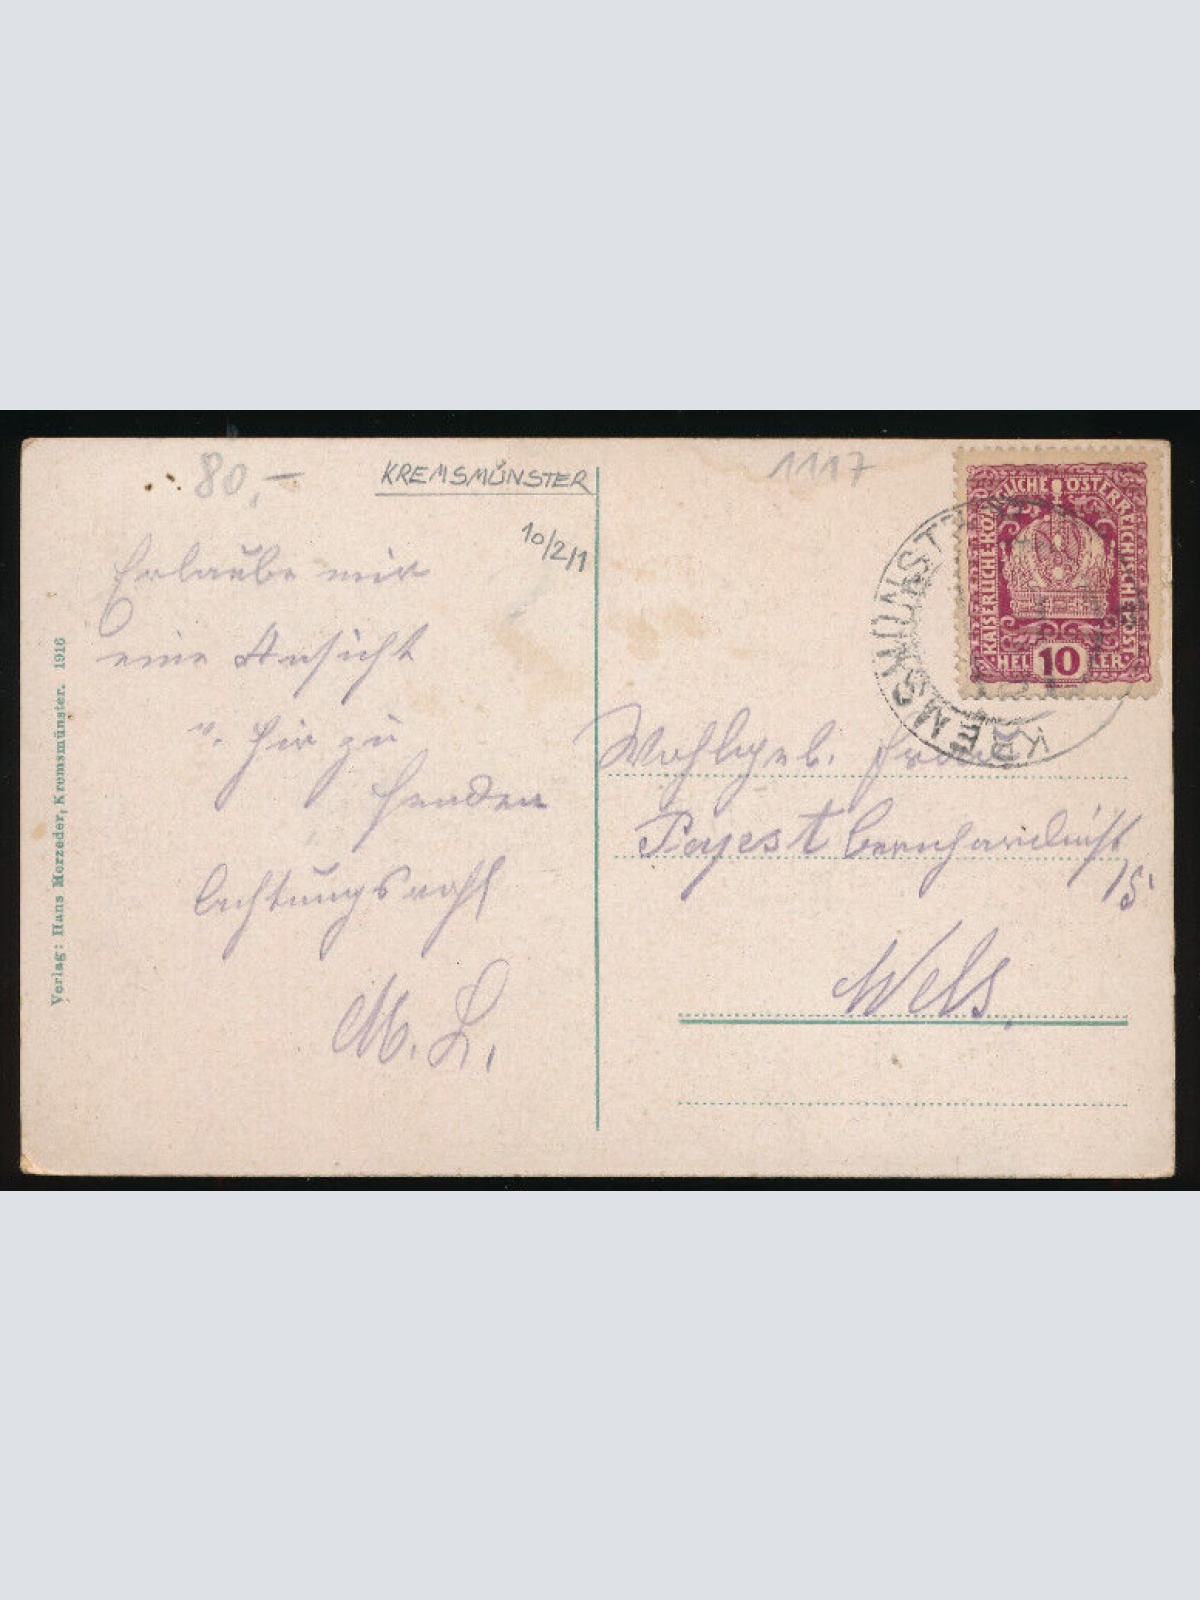 80,-
KREMSMÜNSTER
10/2/1
Erlaube mir
eine Ansicht
v. hir zu
senden
Achtungsvoll
M. L.
Verlag: Hans Merzeder, Kremsmünster. 1916
1117
KAISERLICHE KÖNIGLICHE ÖSTERREICHISCHE POST
HELLER
10
KREMSMÜNSTER
Wohlgeb. Frau
Payest
15
Wels.